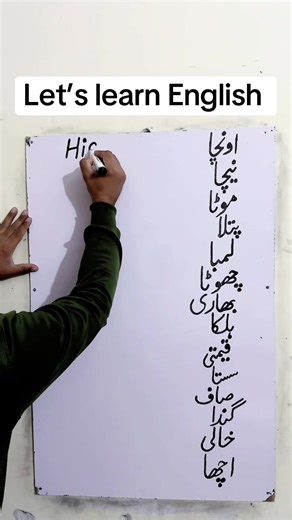 Let's learn English
Hig
اونچا
نیچا
موٹا
پتلا
لمبا
چھوٹا
بھاری
ہلکا
قیمتی
سستا
صاف
گندا
خالی
اچھا